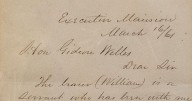 Executive Mansion
March 16/61
Hon Gideon Welles
Dear Sir
The bearer (William) is a
servant who has been with me